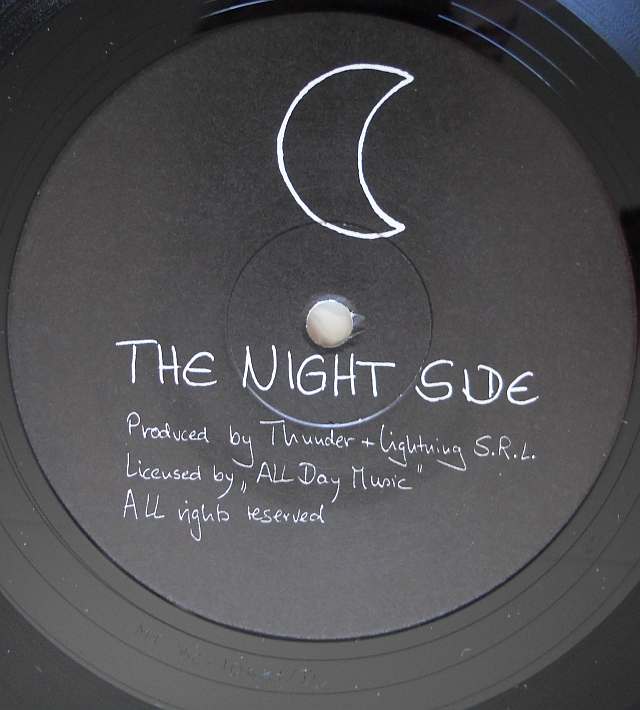 THE NIGHT SIDE
Produced by Thunder + Lightning S.R.L.
Licensed by „ALL Day Music"
All rights reserved